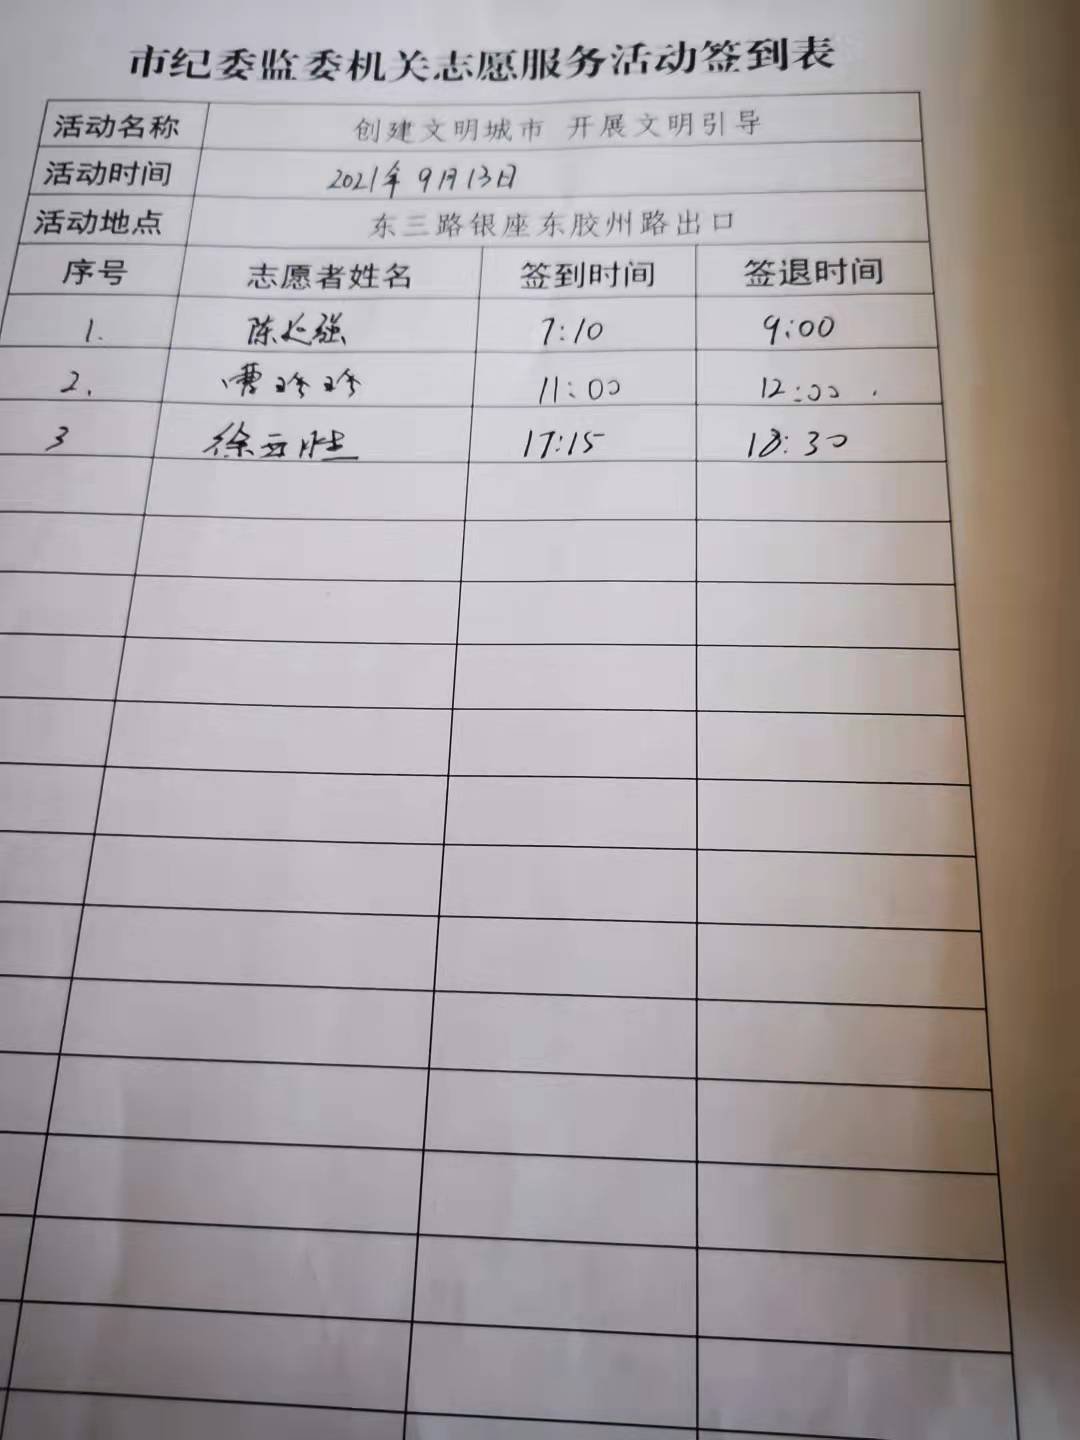 市纪委监委机关志愿服务活动签到表
活动名称 创建文明城市 开展文明引导
活动时间 2021年9月13日
活动地点 东三路银座东胶州路出口
序号 志愿者姓名 签到时间 签退时间
1. 陈延强 7:10 9:00
2. 曹玲玲 11:00 12:00
3 徐云胜 17:15 18:30